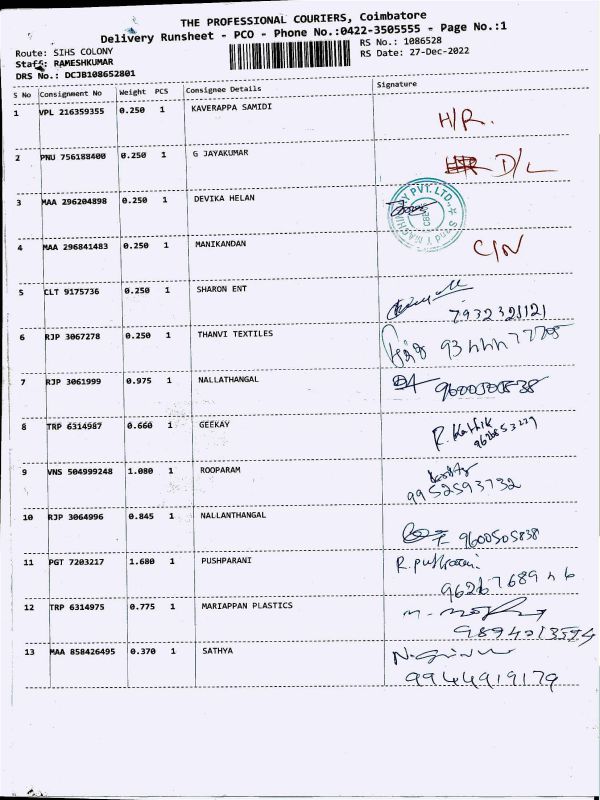 THE PROFESSIONAL COURIERS, Coimbatore
Delivery Runsheet - PCO - Phone No.:0422-3505555 - Page No.:1
Route: SIHS COLONY
RS No.: 1086528
Staff: RAMESHKUMAR
RS Date: 27-Dec-2022
DRS No.: DCJB108652801
S No Consignment No Weight PCS Consignee Details Signature
1 VPL 216359355 0.250 1 KAVERAPPA SAMIDI H/R.
2 PNU 756188400 0.250 1 G JAYAKUMAR D/L
3 MAA 296204898 0.250 1 DEVIKA HELAN
4 MAA 296841483 0.250 1 MANIKANDAN C/N
5 CLT 9175736 0.250 1 SHARON ENT
7932321121
6 RJP 3067278 0.250 1 THANVI TEXTILES
7 RJP 3061999 0.975 1 NALLATHANGAL
8 TRP 6314987 0.660 1 GEEKAY R. Karthik
9 VNS 504999248 1.080 1 ROOPARAM
9952593732
10 RJP 3064996 0.845 1 NALLANTHANGAL
9600505838
11 PGT 7203217 1.680 1 PUSHPARANI
12 TRP 6314975 0.775 1 MARIAPPAN PLASTICS
9894213594
13 MAA 858426495 0.370 1 SATHYA
9944919179